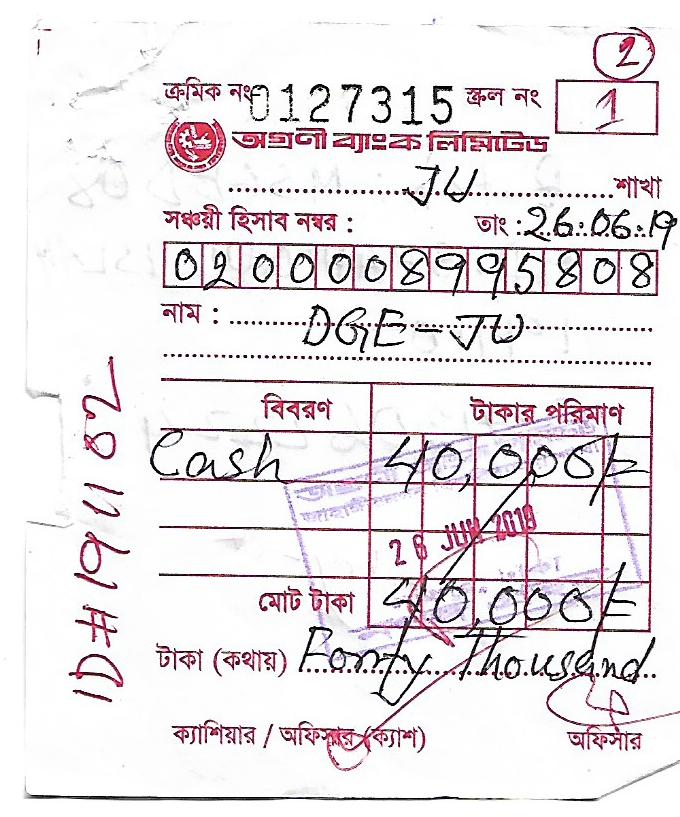 2
ক্রমিক নং 0127315 স্ক্রল নং 1
অগ্রণী ব্যাংক লিমিটেড
JU শাখা
সঞ্চয়ী হিসাব নম্বর : তাং : 26.06.19
0200008995808
নাম : DGE-JU
বিবরণ টাকার পরিমাণ
Cash 40,000/=
26 JUN 2019
মোট টাকা 40,000/=
টাকা (কথায়) Forty Thousand
ক্যাশিয়ার / অফিসার (ক্যাশ) অফিসার